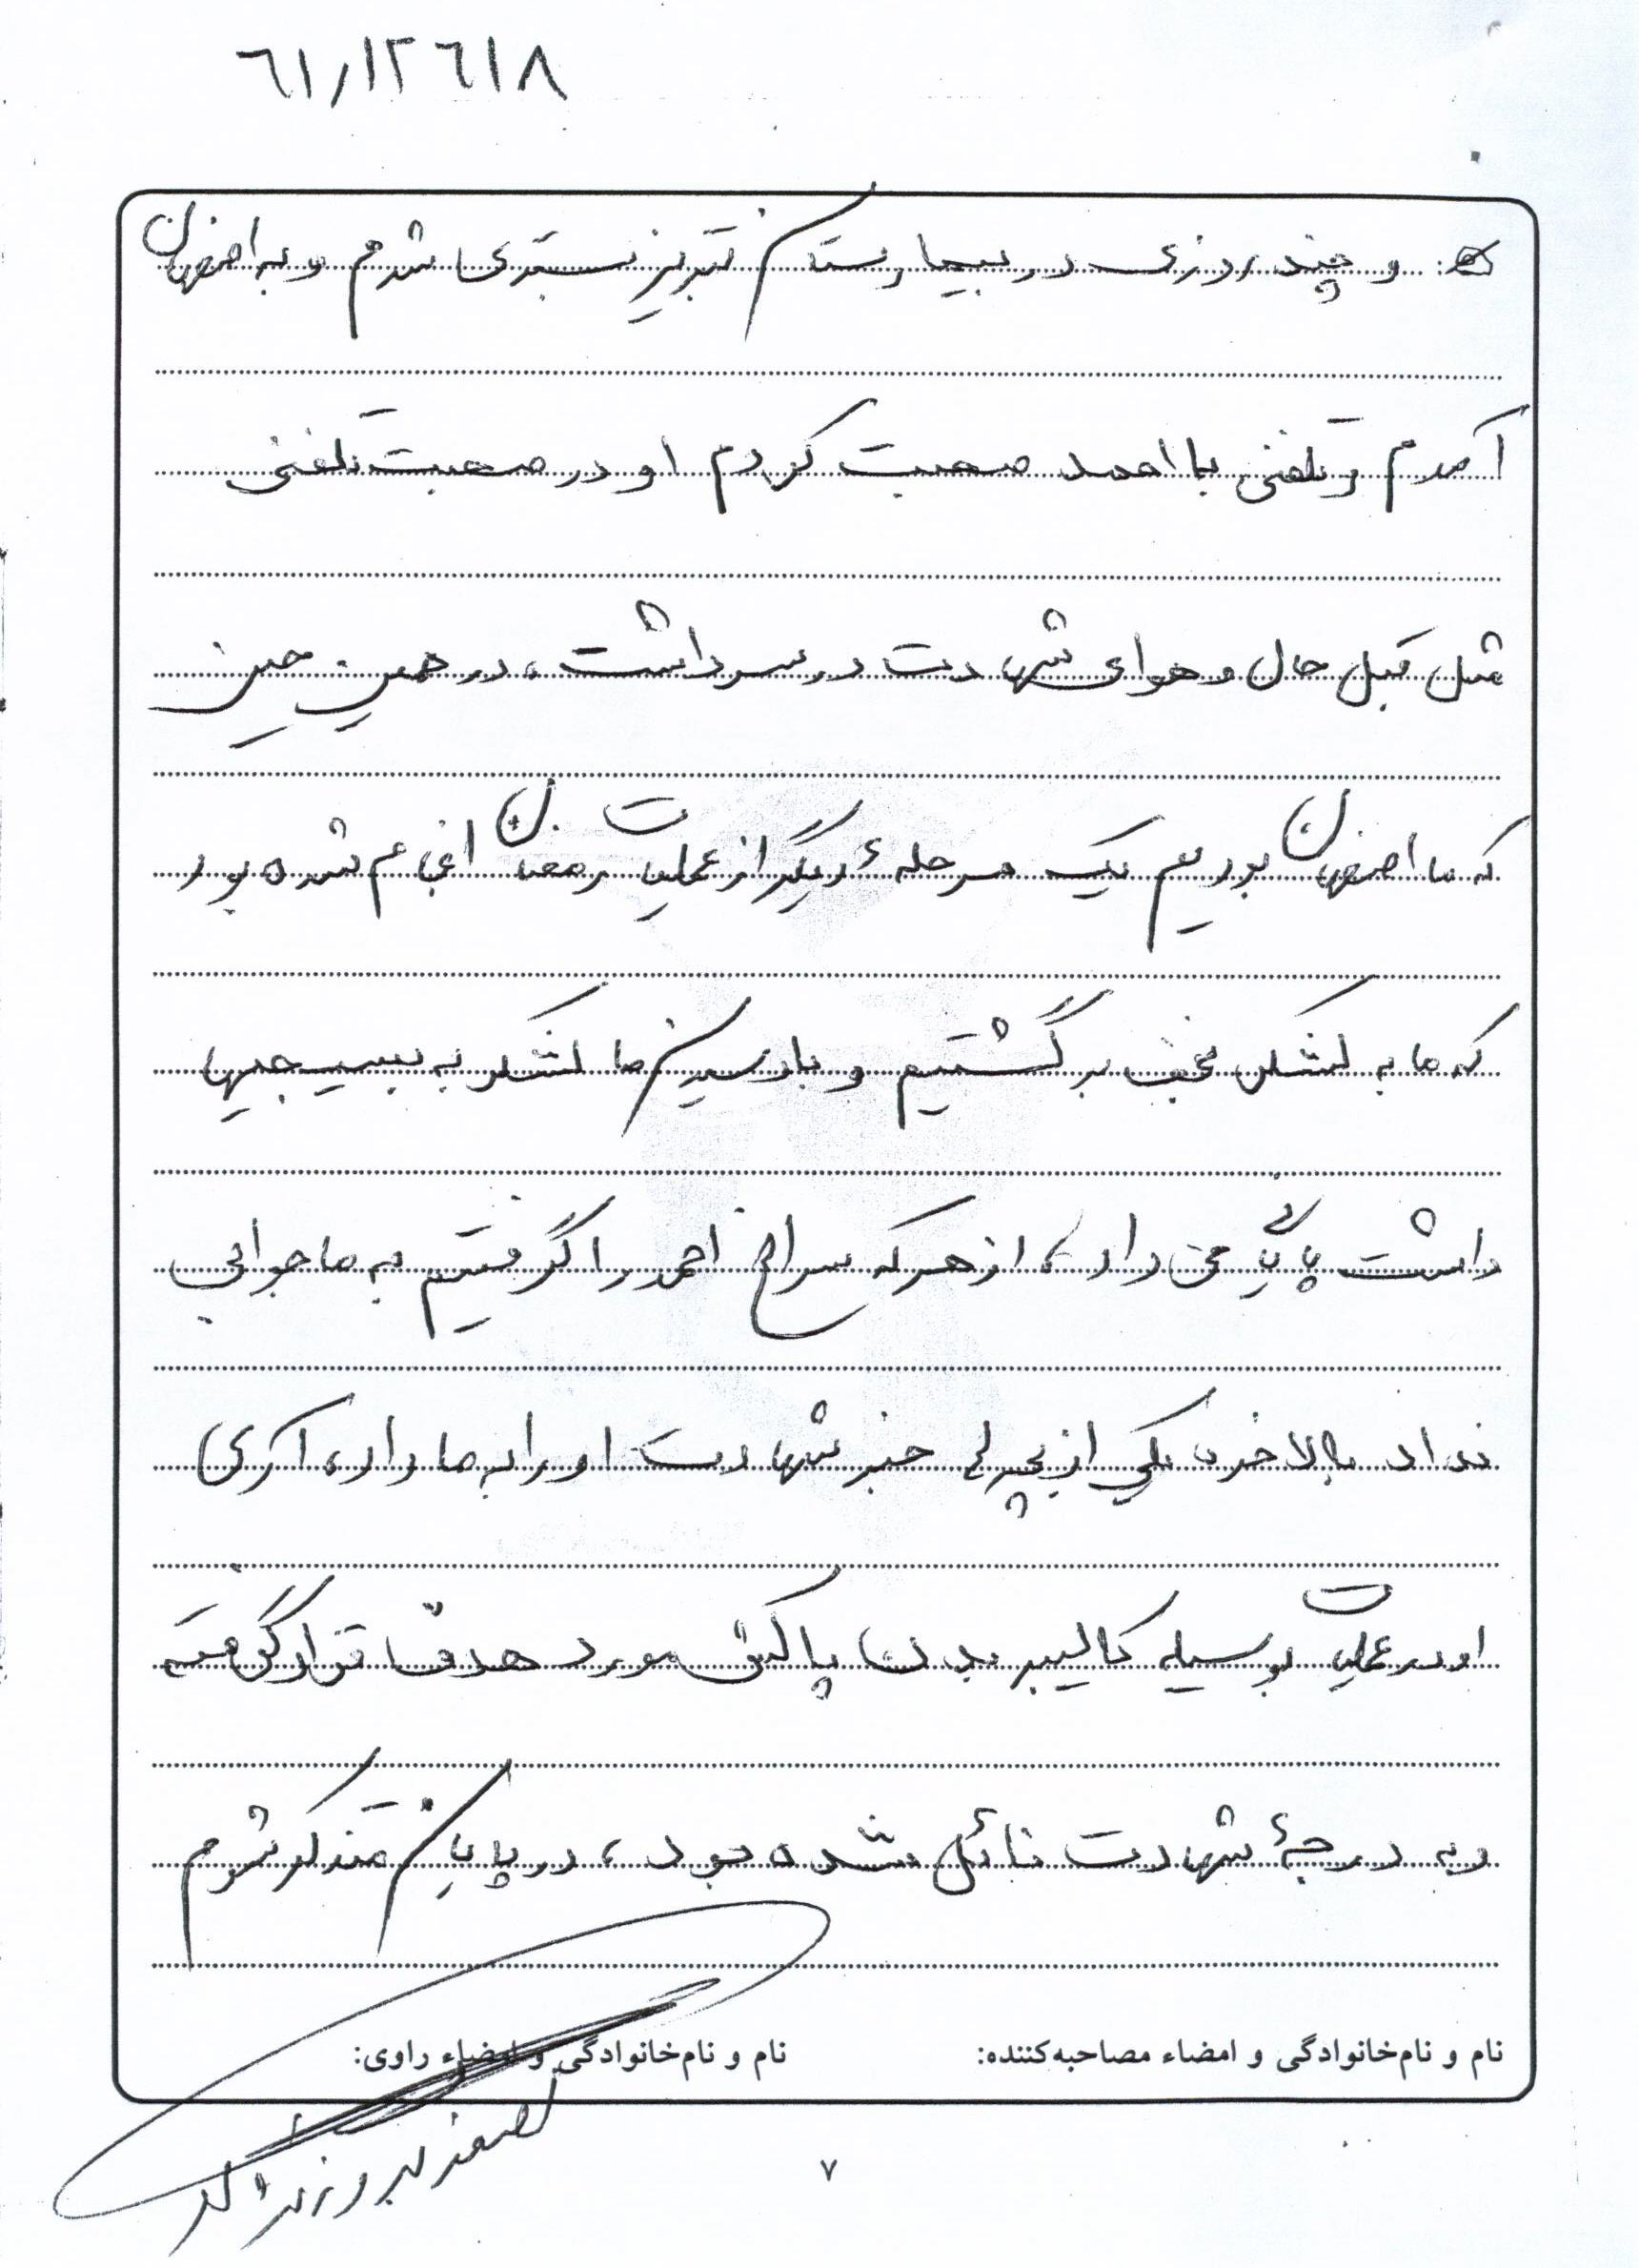 ٦١٫١٢٦١٨
و چند روزی در بیمارستان تبریز بستری شدم و به اصفهان
آمدم و تلفنی با احمد صحبت کردم او در صحبت تلفنی
مثل قبل حال و هوای شهادت در سر داشت، در همین حین
که ما اصفهان بودیم یک مرحلهٔ دیگر از عملیات رمضان انجام شده بود
که ما به لشکر نجف برگشتیم و با رسیدن ما لشکر به بسیجیها
داشت پایانی می داد، از هر که سراغ احمد را گرفتیم به ما جوابی
نداد بالاخره یکی از بچه ها خبر شهادت او را به ما داد، آری
او در عملیات بوسیله کالیبر بدن پاکش مورد هدف قرار گرفته
و به درجهٔ شهادت نائل شده بود، در پایان متذکر شوم
نام و نام‌خانوادگی و امضاء مصاحبه‌کننده:
نام و نام‌خانوادگی و امضاء راوی:
۷